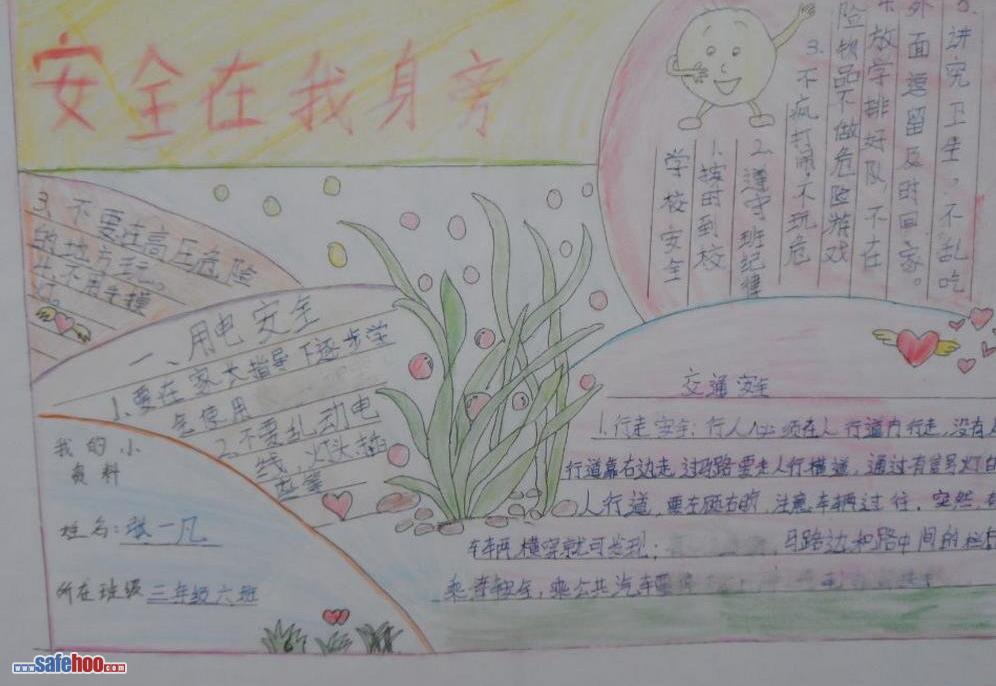 安全在我身旁
学校安全
1.按时到校
2.遵守班纪律
3.不疯打闹,不玩危
险物品不做危险游戏
放学排好队,不在
外面逗留及时回家。
5.讲究卫生,不乱吃
3、不要在高压危险
的地方玩。
4.不用手撞
灯。
一、用电安全
1、要在家大指导下逐步学
会使用
2.不要乱动电
线,灯头,插
座等
我的小
资料
姓名:张一凡
所在班级 三年级六班
交通安全
1.行走安全:行人必须在人行道内行走,没有人
行道靠右边走,过马路要走人行横道,通过有信号灯的
人行道,要左顾右盼,注意车辆过往,突然
车辆横穿就可出现;马路边和路中间的栏杆
乘车安全,乘公共汽车要
www.safehoo.com